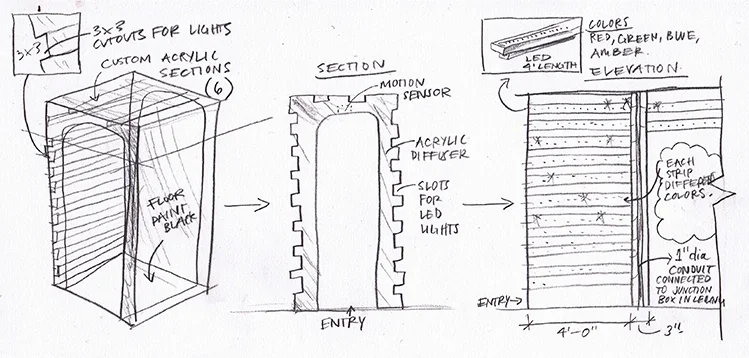 3x3
3x3
CUTOUTS FOR LIGHTS
CUSTOM ACRYLIC
SECTIONS
(6)
FLOOR
PAINT
BLACK
SECTION
MOTION
SENSOR
ACRYLIC
DIFFUSER
SLOTS
FOR
LED
LIGHTS
ENTRY
LED
4' LENGTH
COLORS
RED, GREEN, BLUE,
AMBER.
ELEVATION
EACH
STRIP
DIFFERENT
COLORS.
1" dia
CONDUIT
CONNECTED
TO JUNCTION
BOX IN
ENTRY
4'-0"
3"